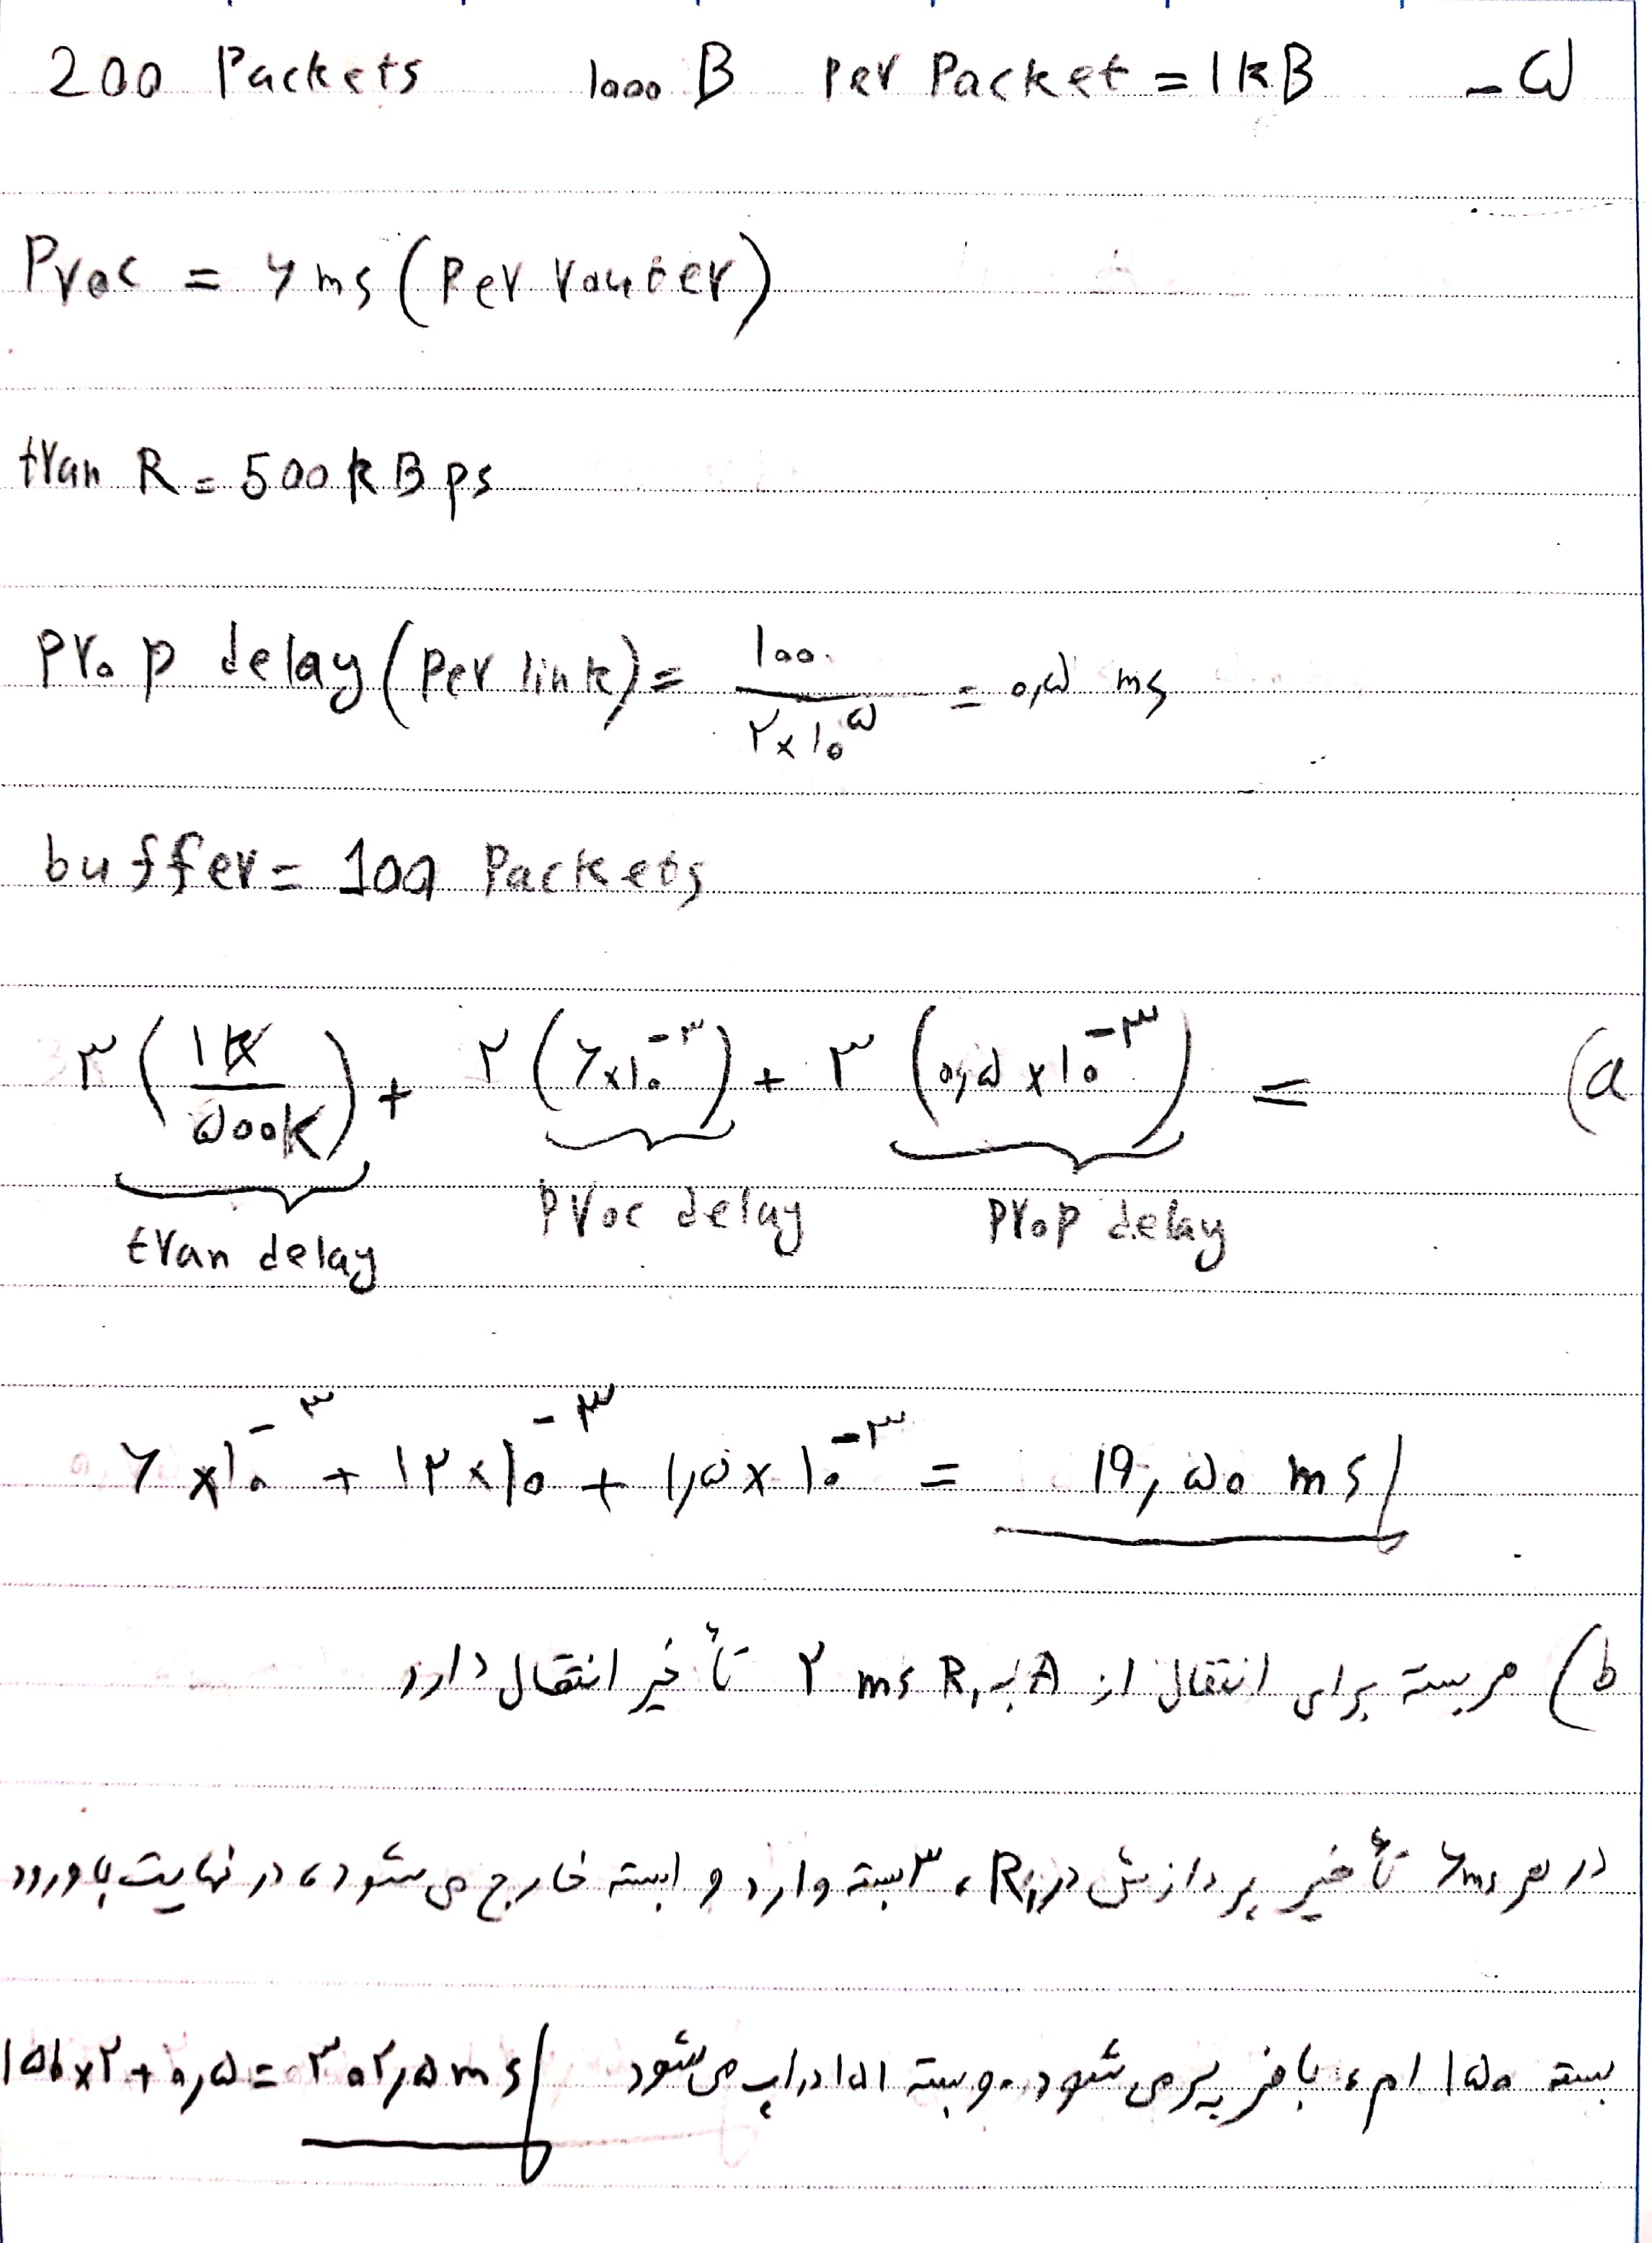 ۵- 200 Packets 1000 B per Packet = 1kB
Proc = ۶ ms (Per router)
tran R = 500 kBps
prop delay (Per link) = ۱۰۰ / ۲×۱۰^۵ = ۰,۵ ms
buffer = 100 Packets
a) ۳ (۱K / ۵۰۰K) + ۲ (۶×۱۰^-۳) + ۳ (۰,۵×۱۰^-۳) =
tran delay proc delay prop delay
۶×۱۰^-۳ + ۱۲×۱۰^-۳ + ۱,۵×۱۰^-۳ = ۱۹,۵۰ ms
b) هر بسته برای انتقال از A به R۱ ۲ ms تأخیر انتقال دارد
در هر ۶ms تأخیر پردازش در R۱، ۳ بسته وارد و ۱ بسته خارج می شود، در نهایت با ورود
بسته ۱۵۰ ام، بافر پر می شود. و بسته ۱۵۱ دراپ می شود ۱۵۱×۲+۰,۵=۳۰۲,۵ms